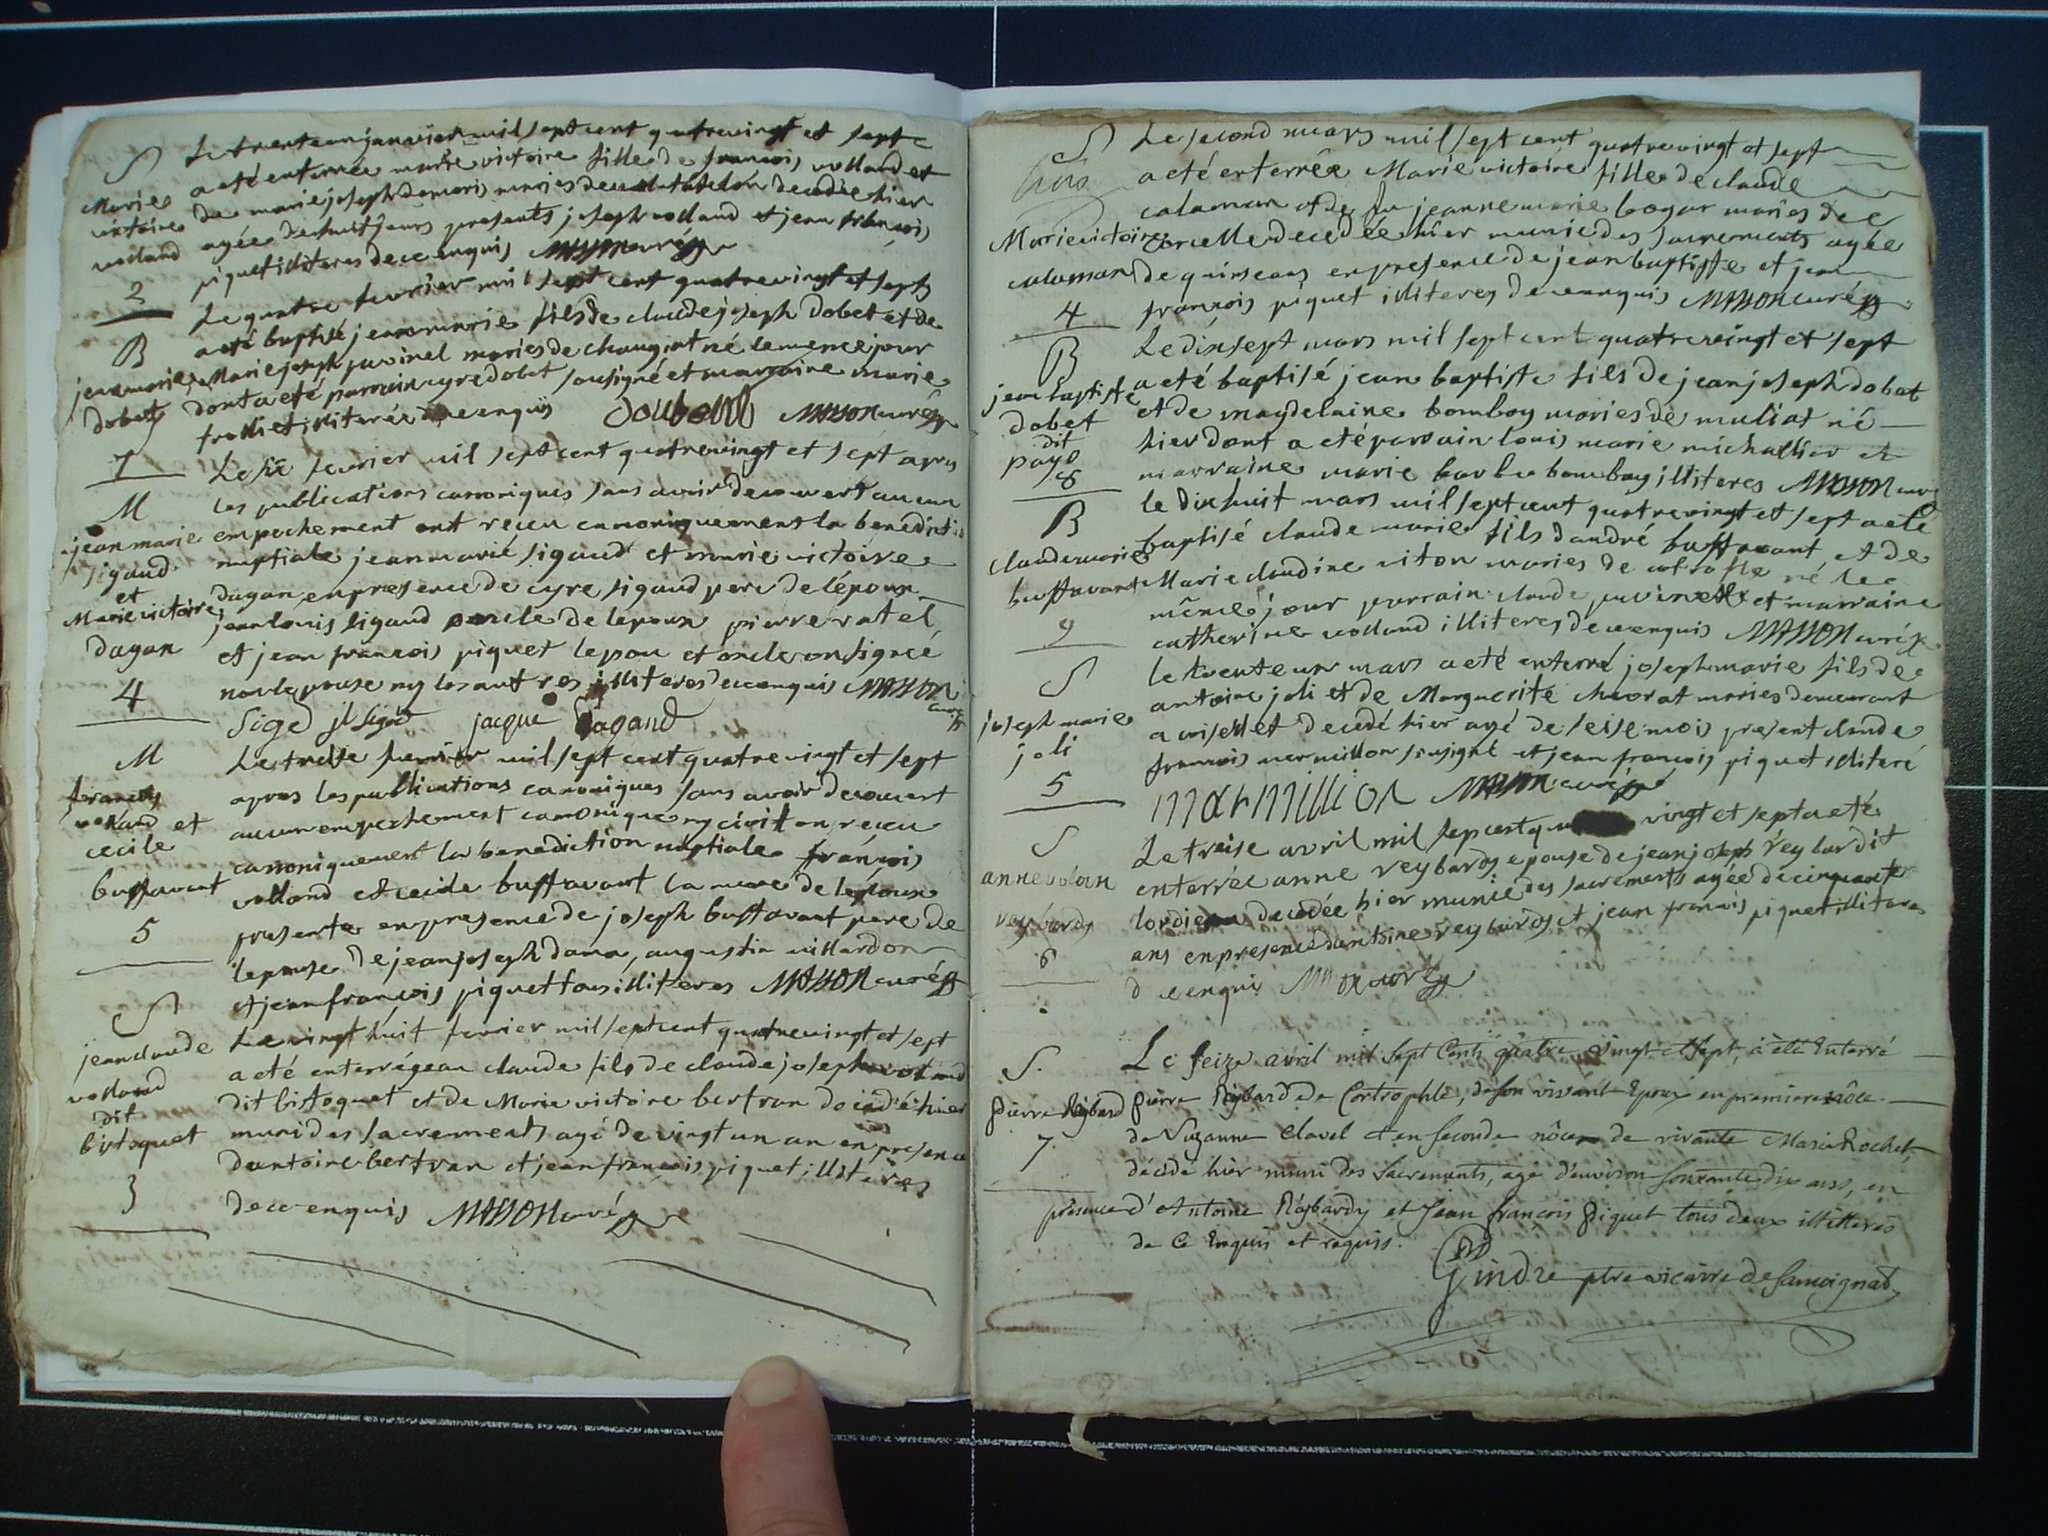 S
Le trente un janvier mil sept cent quatrevingt et sept
a été enterrée marie victoire fille de francois volland et
Marie
victoire
volland
2
de marie joseph demaris maries de decedée hier
agée de huit jours presents joseph volland et jean francois
piquet illiteres de ce enquis MASSON curé
B
jeanmarie
dobet
7
Le quatre fevrier mil sept cent quatrevingt et sept
a été baptisé jeanmarie fils de claude joseph dobet et de
Marie joseph juvinel maries de changiat né le meme jour
dont a été parrain cyre dobet sousigné et marraine marie
illiterée de ce enquis MASSON curé
M
jean marie
sigaud
et
Marie victoire
dagan
4
Le six fevrier mil sept cent quatrevingt et sept apres
les publications canoniques sans avoir decouvert aucun
empechement ont reçeu canoniquement la benediction
nuptiale jean marie sigaud et marie victoire
dagan en presence de cyre sigaud pere de lépoux
jean louis sigaud oncle de lepoux pierre ratel
et jean francois piquet lépou et oncle on signéé
non lepouse ny les autres illiteres de ce enquis MASSON
curé
jacque dagand
M
francois
volland et
cecile
buffavant
5
Le treise fevrier mil sept cent quatrevingt et sept
apres les publications canoniques sans avoir decouvert
aucun empechement canonique ny civil on reçeu
canoniquement la benediction nuptiale francois
volland et cecile buffavant la mere de lepoux
presente en presence de joseph buffavant pere de
lepouse de jean joseph dama, augustin villardon
et jean francois piquet tous illiteres MASSON curé
S
jean claude
volland
dit
bistoquet
3
Le vingt huit fevrier mil sept cent quatrevingt et sept
a été enterré jean claude fils de claude joseph volland
dit bistoquet et de Marie victoire bertran decedé hier
muni des sacrements agé de vingt un an en presence
dantoine bertran et jean francois piquet illiteres
de ce enquis MASSON curé
S
Marie victoire
calaman
4
Le second mars mil sept cent quatrevingt et sept
a été enterrée Marie victoire fille de claude
calaman et de fu jeanne marie bogar maries de
corcelle decedée hier munie des sacrements agée
de quinse ans en presence de jean baptiste et jean
francois piquet illiteres de ce enquis MASSON curé
B
jean baptiste
dobet
dit
payo
8
Le dixsept mars mil sept cent quatrevingt et sept
a été baptisé jean baptiste fils de jean joseph dobet
et de magdelaine bomboy maries de muliat né
hier dont a été parrain louis marie michallier et
marraine marie barbe bomboy illiteres MASSON curé
B
claude marie
buffavant
9
le dixhuit mars mil sept cent quatrevingt et sept a été
baptisé claude marie fils d'andré buffavant et de
Marie claudine viton maries de né le
même jour parrain claude juvinel et marraine
catherine volland illiteres de ce enquis MASSON curé
S
joseph marie
joli
5
le trente un mars a été enterré joseph marie fils de
antoine joli et de Marguerite chevrat maries demeurant
a decedé hier agé de seise mois present claude
francois vermillion sousigné et jean francois piquet illiteré
marmillion MASSON curé
S
anne
reybardy
6
Le treise avril mil sep cent vingt et sept a eté
enterrée anne reybardy epouse de jean joseph reybar dit
decedée hier munie des sacrements agée de cinquante
ans en presence dantoine reybardy et jean francois piquet illiteres
de ce enqui MASSON curé
S.
Pierre Reybard
7
Le seize avril mil sept Cents quatre vingt et sept, a été Enterré
pierre Reybard de Cortrophle, de son vivant Epoux en premiere nôce
de Suzanne Clavel et en seconde nôce de vivante Marie Rochet,
décédé hier muni des Sacrements, agé d'environ soixante dix ans, en
présence d'Antoine Reybardy et Jean francois piquet tous deux illitteres
de Ce Enquis et requis.
Gindre ptre vicaire de Samoignat